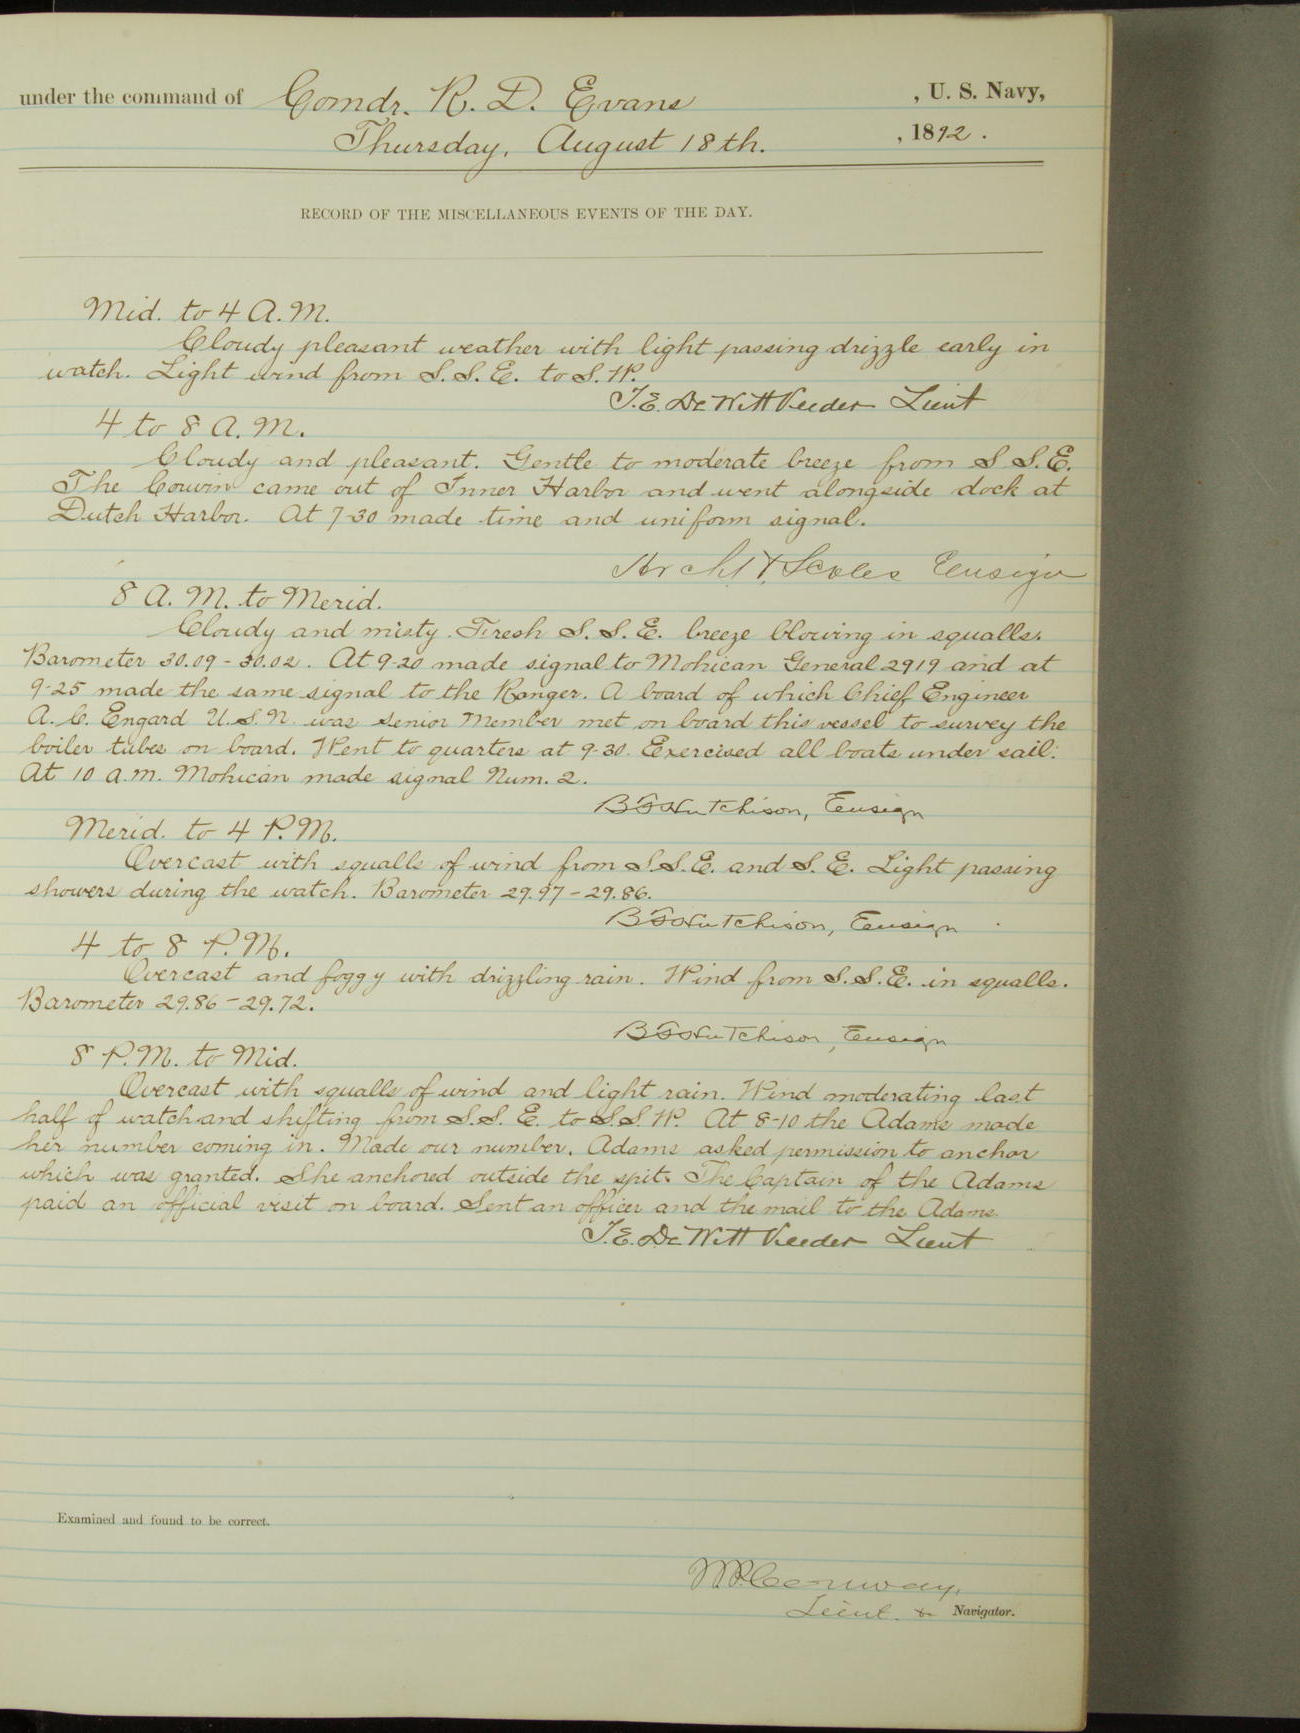 under the command of Comdr. R. D. Evans, U. S. Navy,
Thursday, August 18th., 1892.
RECORD OF THE MISCELLANEOUS EVENTS OF THE DAY.
Mid. to 4 A.M.
Cloudy pleasant weather with light passing drizzle early in
watch. Light wind from S.S.E. to S.W.
T.E. DeWitt Veeder Lieut
4 to 8 A.M.
Cloudy and pleasant. Gentle to moderate breeze from S.S.E.
The Corwin came out of Inner Harbor and went alongside dock at
Dutch Harbor. At 7-30 made time and uniform signal.
Archd H. Scales Ensign
8 A.M. to Merid.
Cloudy and misty. Fresh S.S.E. breeze blowing in squalls.
Barometer 30.09 - 30.02. At 9-20 made signal to Mohican General 2919 and at
9-25 made the same signal to the Ranger. A board of which Chief Engineer
A.C. Engard U.S.N. was senior Member met on board this vessel to survey the
boiler tubes on board. Went to quarters at 9-30. Exercised all boats under sail.
At 10 a.m. Mohican made signal Num. 2.
B F Hutchison, Ensign
Merid. to 4 P.M.
Overcast with squalls of wind from S.S.E. and S.E. Light passing
showers during the watch. Barometer 29.97 - 29.86.
B F Hutchison, Ensign
4 to 8 P.M.
Overcast and foggy with drizzling rain. Wind from S.S.E. in squalls.
Barometer 29.86 - 29.72.
B F Hutchison, Ensign
8 P.M. to Mid.
Overcast with squalls of wind and light rain. Wind moderating last
half of watch and shifting from S.S.E. to S.S.W. At 8-10 the Adams made
her number coming in. Made our number. Adams asked permission to anchor
which was granted. She anchored outside the spit. The Captain of the Adams
paid an official visit on board. Sent an officer and the mail to the Adams.
T.E. DeWitt Veeder Lieut
Examined and found to be correct.
W.P. Conway,
Lieut. & Navigator.